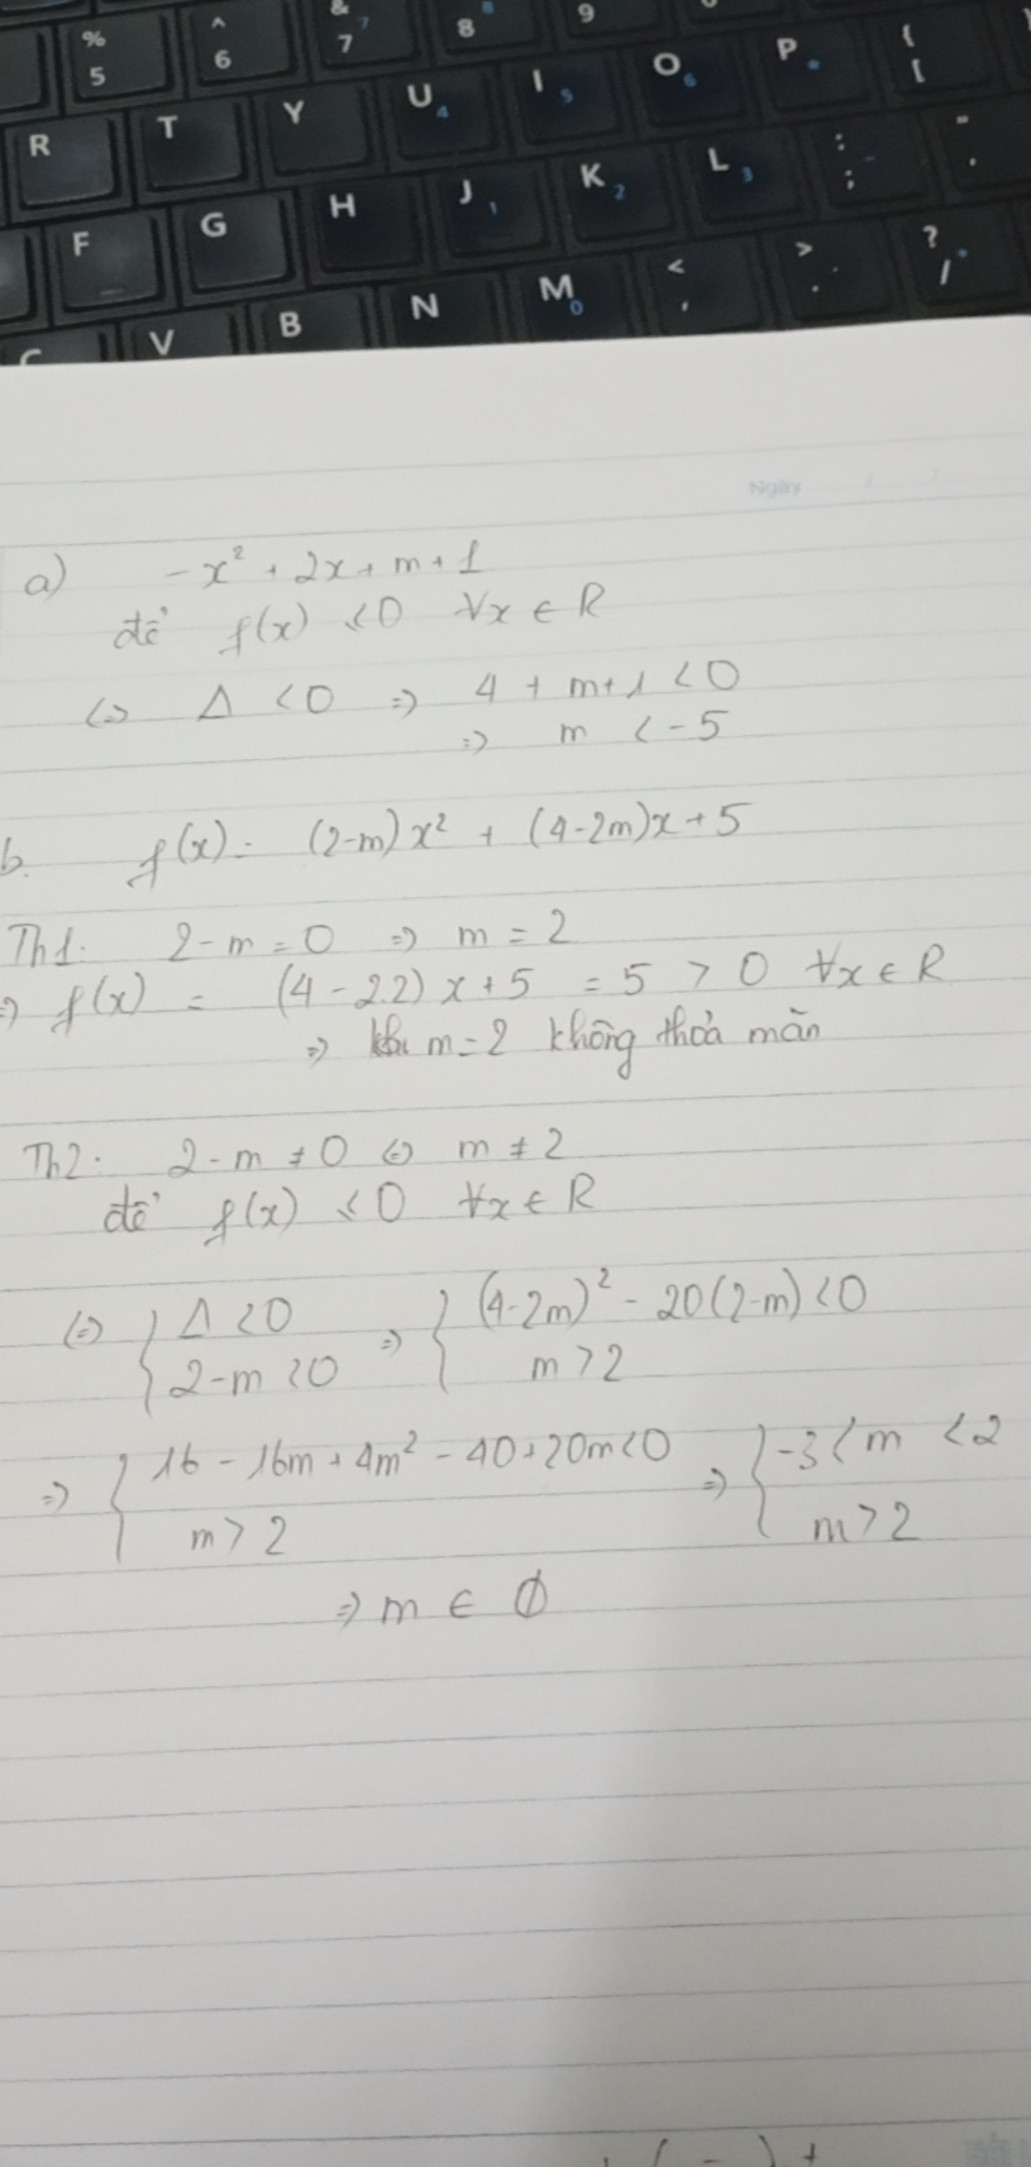 % 5
^ 6
& 7 7
8 8
9
R
T
Y
U 4
I 5
O 6
P *
{ [
F
G
H
J 1
K 2
L 3
: ; -
" '
C
V
B
N
M 0
< ,
> .
? /
Ngày / /
a) -x² + 2x + m + 1
để f(x) ≤ 0 ∀x ∈ R
⇔ Δ < 0 ⇒ 4 + m+1 < 0
⇒ m < -5
b. f(x) = (2-m)x² + (4-2m)x + 5
Th1: 2 - m = 0 ⇒ m = 2
⇒ f(x) = (4 - 2.2) x + 5 = 5 > 0 ∀x ∈ R
⇒ khi m = 2 không thoả mãn
Th2: 2 - m ≠ 0 ⇔ m ≠ 2
để f(x) ≤ 0 ∀x ∈ R
⇔ { Δ < 0 ⇒ { (4-2m)² - 20(2-m) < 0
2-m < 0 m > 2
⇒ { 16 - 16m + 4m² - 40 + 20m < 0 ⇒ { -3 < m < 2
m > 2 m > 2
⇒ m ∈ ∅